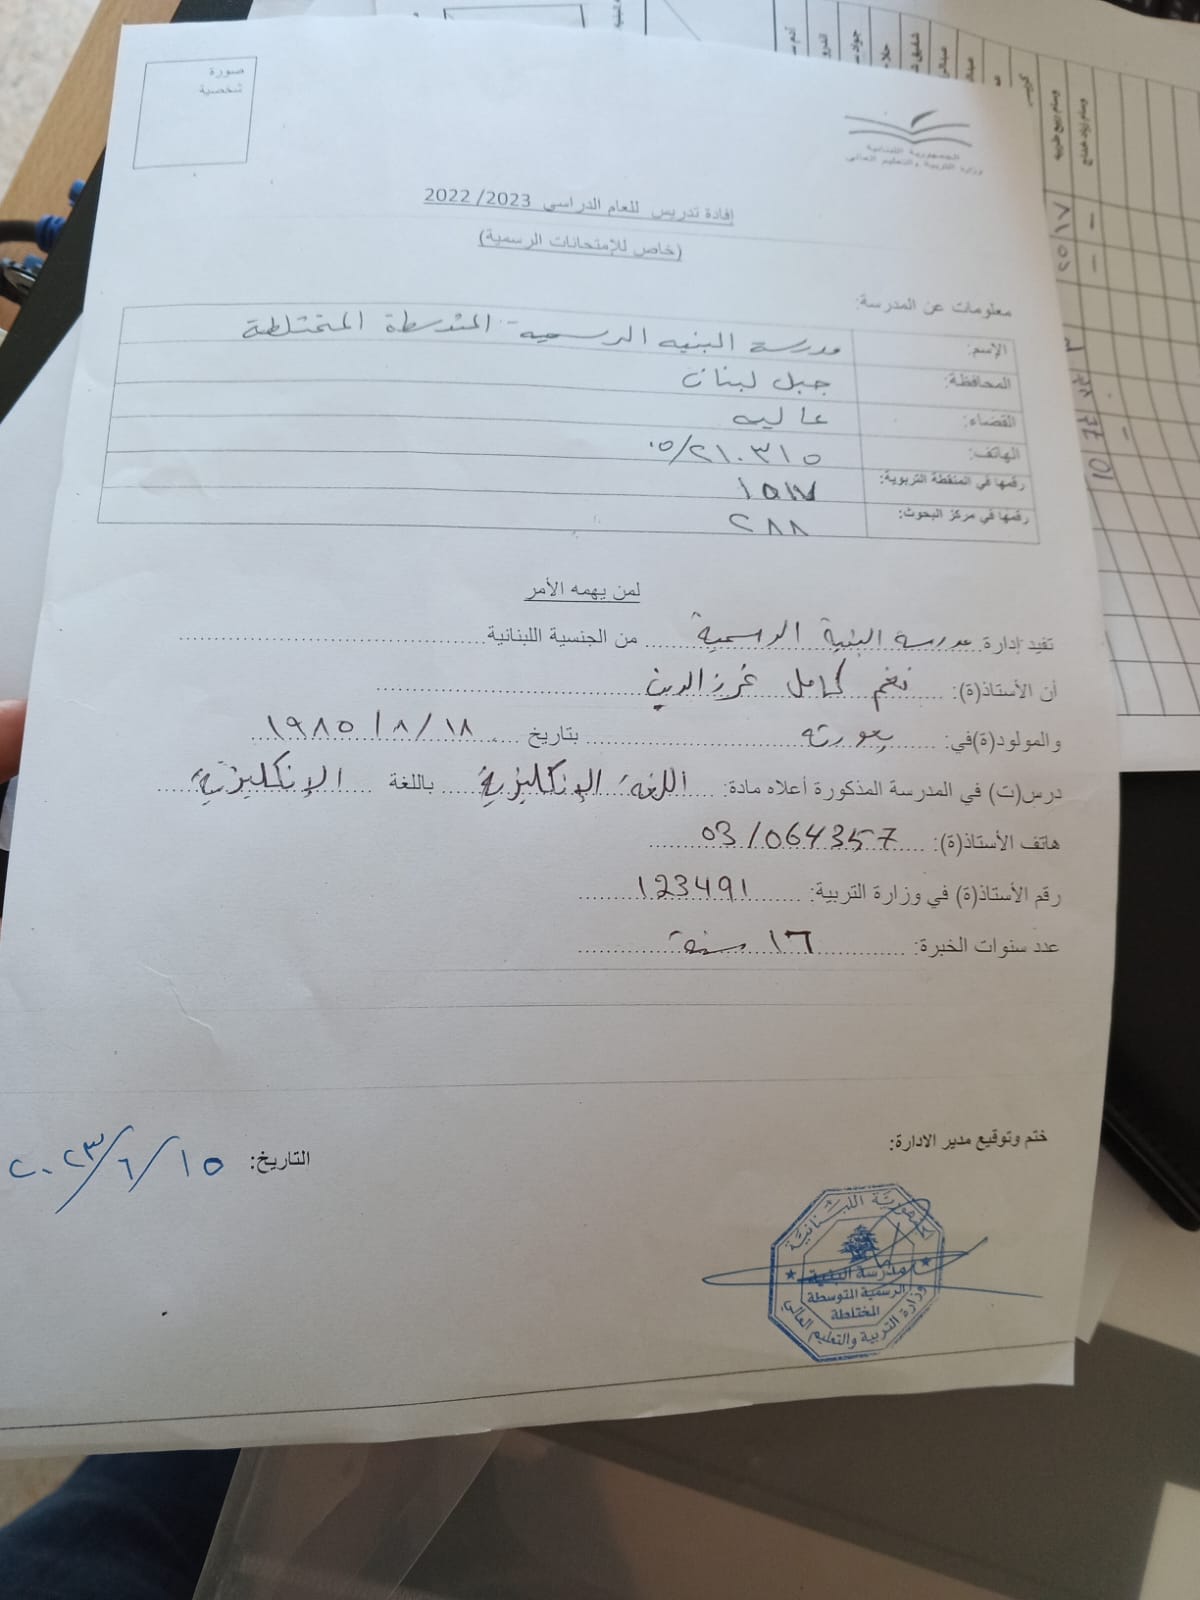 صورة
شخصية
الجمهورية اللبنانية
وزارة التربية والتعليم العالي
إفادة تدريس للعام الدراسي 2023/ 2022
(خاص للإمتحانات الرسمية)
معلومات عن المدرسة:
الإسم: مدرسة البنيه الرسمية المتوسطة المختلطة
المحافظة: جبل لبنان
القضاء: عاليه
الهاتف: ٠٥/٢١٠٣١٥
رقمها في المنقطة التربوية: ١٥١٧
رقمها في مركز البحوث: ٢٨٨
لمن يهمه الأمر
تفيد إدارة مدرسة البنية الرسمية من الجنسية اللبنانية
أن الأستاذ(ة): نغم كامل عز الدين
والمولود(ة)في: بعورته بتاريخ ١٨/٨/١٩٨٥
درس(ت) في المدرسة المذكورة أعلاه مادة: اللغة الإنكليزية باللغة الإنكليزية
هاتف الأستاذ(ة): 03/064357
رقم الأستاذ(ة) في وزارة التربية: 123491
عدد سنوات الخبرة: ١٦ سنة
ختم وتوقيع مدير الادارة:
التاريخ: ١٥/٦/٢٠٢٣
الجمهورية اللبنانية
مدرسة البنية
الرسمية المتوسطة
المختلطة
وزارة التربية والتعليم العالي